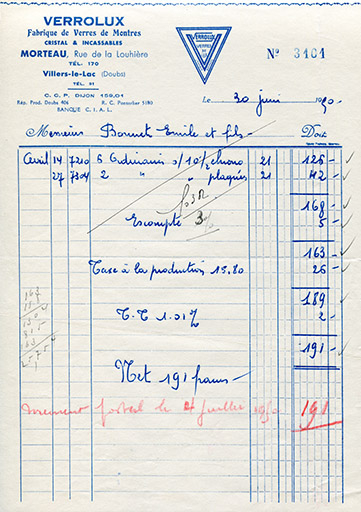 VERROLUX
Fabrique de Verres de Montres
CRISTAL & INCASSABLES
MORTEAU, Rue de la Louhière
TÉL. 170
Villers-le-Lac (Doubs)
TÉL. 91
C. C. P. DIJON 159,01
Rég. Prod. Doubs 406 R. C. Pontarlier 5180
BANQUE C. I. A. L.
VERROLUX
N° 3101
Le 30 juin 1950
Messieurs Bonnet Emile et fils Doit
Avril 14 7210 6 Ordinaires s/10½ chrono 21 126 -
27 7304 2 " " plaqués 21 42 -
168
Escompte 3% 5 -
163
Taxe à la production 15.80 26 -
189
T.T 1.01% 2 -
191 -
Net 191 francs -
Virement postal le 4 juillet 1950 191